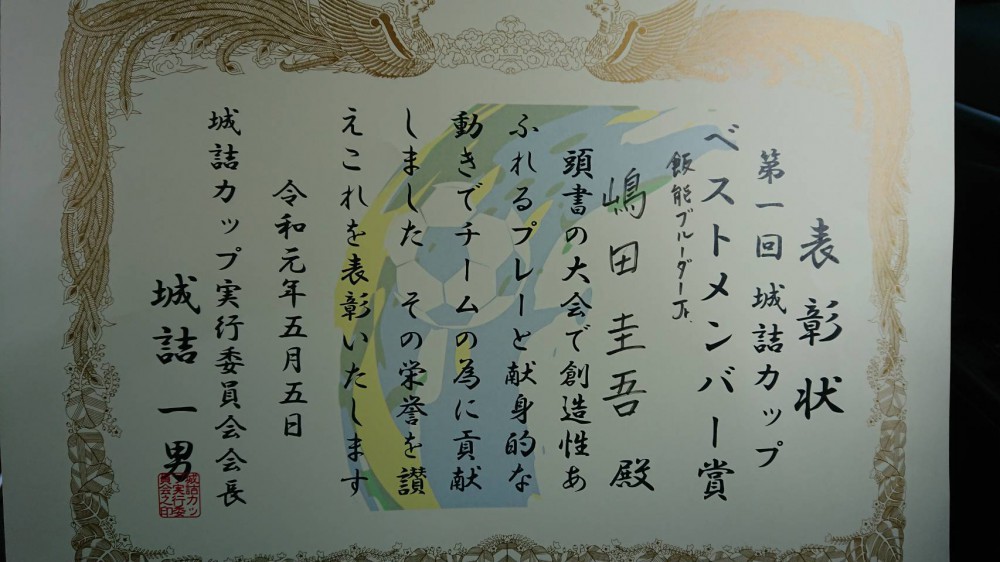 表彰状
第一回 城詰カップ
ベストメンバー賞
飯能ブルーダーJr.
嶋田圭吾 殿
頭書の大会で創造性あ
ふれるプレーと献身的な
動きでチームの為に貢献
しました その栄誉を讃
えこれを表彰いたします
令和元年五月五日
城詰カップ実行委員会会長
城詰一男
城詰カッ
プ実行委
員会之印